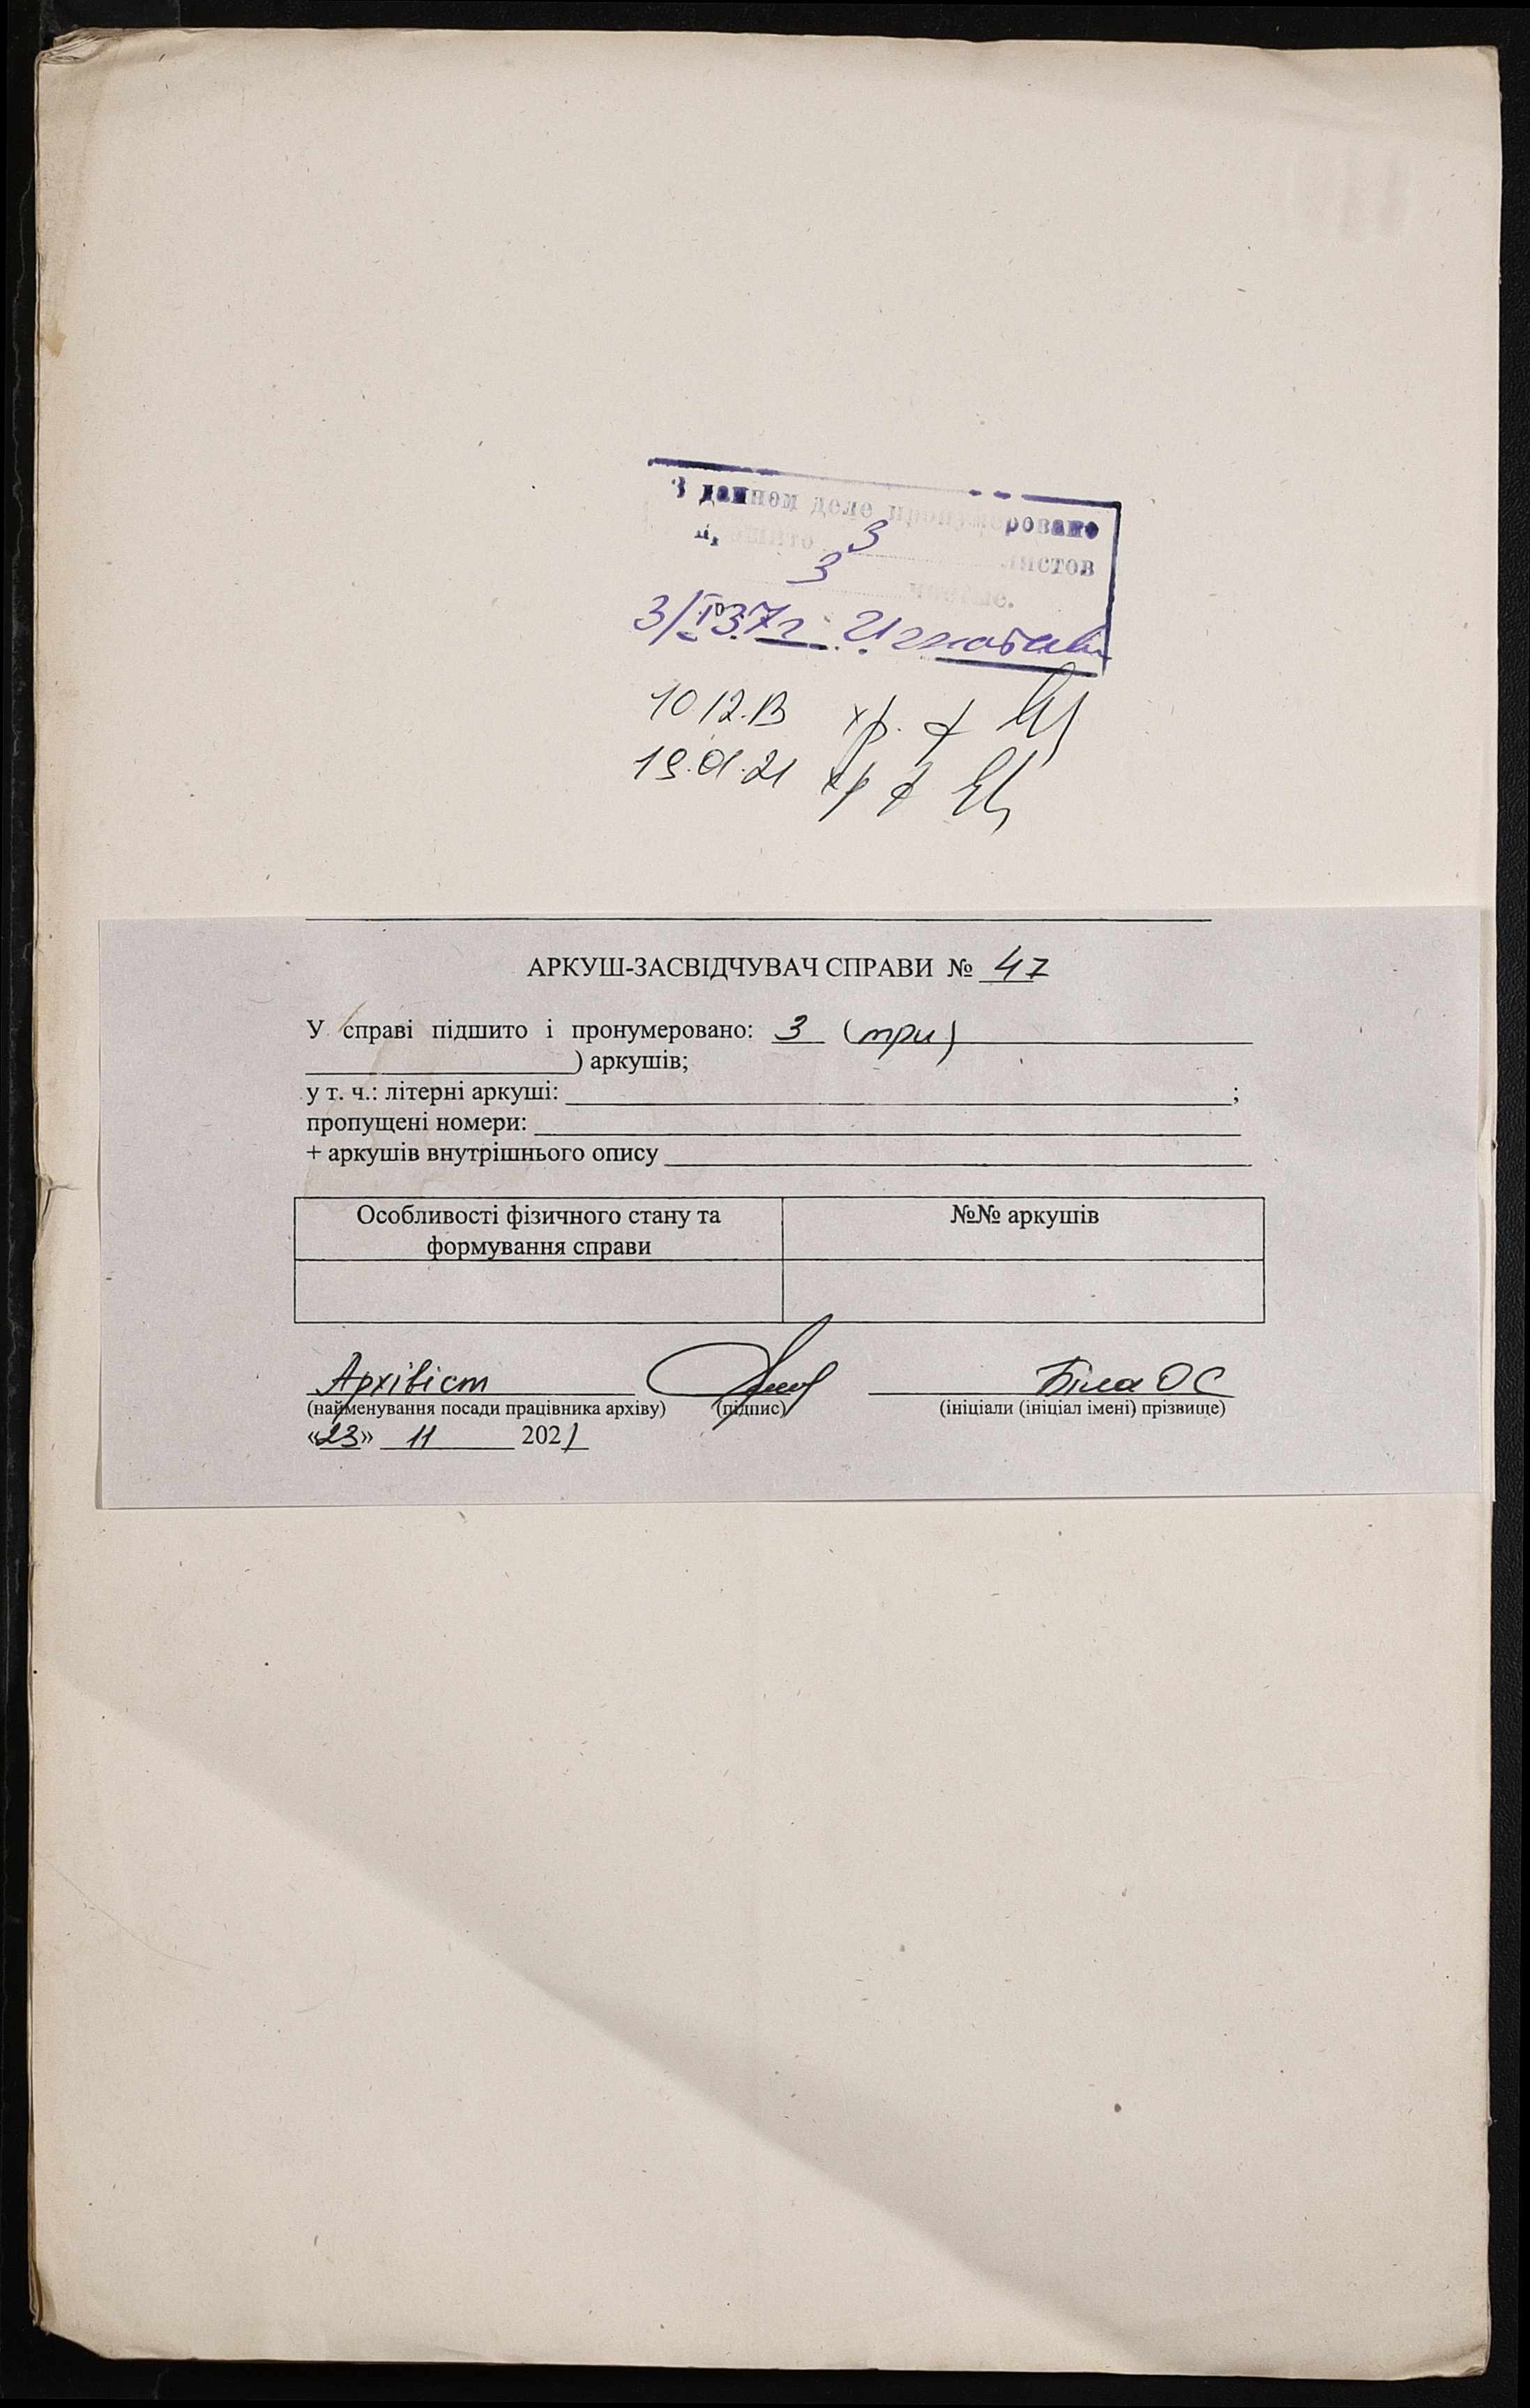 В данном деле пронумеровано
прошито 3 листов
3 чистые.
3/ 37г.
10 12.13 хр. ф
19.01.21 хр ф
АРКУШ-ЗАСВІДЧУВАЧ СПРАВИ № 47
У справі підшито і пронумеровано: 3 (три)
) аркушів;
у т. ч.: літерні аркуші: ;
пропущені номери:
+ аркушів внутрішнього опису
Особливості фізичного стану та формування справи
№№ аркушів
Архівіст Біла О С
(найменування посади працівника архіву) (підпис) (ініціали (ініціал імені) прізвище)
«23» 11 2021